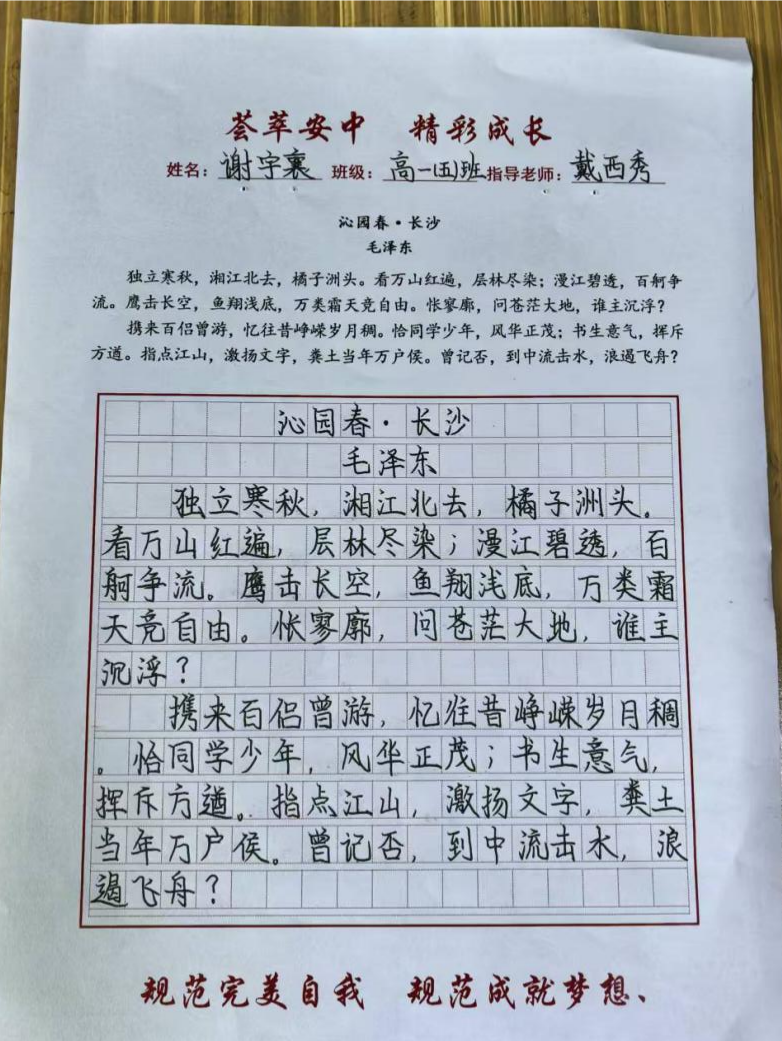 荟萃安中 精彩成长
姓名：谢宇襄 班级：高一(五)班 指导老师：戴西秀
沁园春·长沙
毛泽东
独立寒秋，湘江北去，橘子洲头。看万山红遍，层林尽染；漫江碧透，百舸争
流。鹰击长空，鱼翔浅底，万类霜天竞自由。怅寥廓，问苍茫大地，谁主沉浮？
携来百侣曾游，忆往昔峥嵘岁月稠。恰同学少年，风华正茂；书生意气，挥斥
方遒。指点江山，激扬文字，粪土当年万户侯。曾记否，到中流击水，浪遏飞舟？
沁园春·长沙
毛泽东
独立寒秋，湘江北去，橘子洲头。
看万山红遍，层林尽染；漫江碧透，百
舸争流。鹰击长空，鱼翔浅底，万类霜
天竞自由。怅寥廓，问苍茫大地，谁主
沉浮？
携来百侣曾游，忆往昔峥嵘岁月稠
。恰同学少年，风华正茂；书生意气，
挥斥方遒。指点江山，激扬文字，粪土
当年万户侯。曾记否，到中流击水，浪
遏飞舟？
规范完美自我 规范成就梦想、